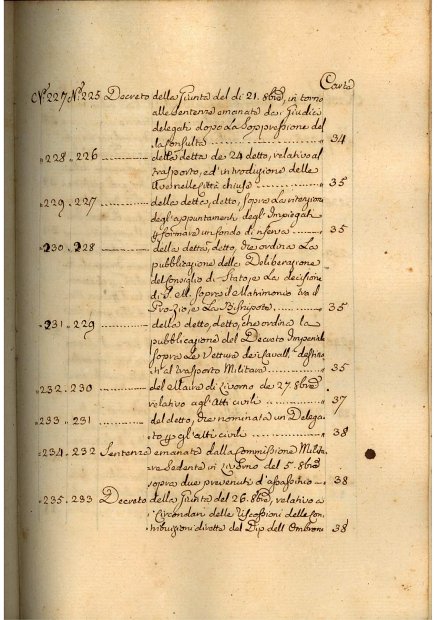 Carta
N.° 227 N.° 225 Decreto della Giunta del dì 21. 8bre, in torno
alle Sentenze emanate dai Giudici
delegati dopo la Soppressione del
la Consulta 34
" 228 " 226 della detta de 24 detto, relativo al
trasporto, ed introduzione delle
Uve nelle Città chiuse 35
" 229 " 227 della detta, detto, sopra la ritenzione
degl'appuntamenti degl'Impiegati
p formare un fondo di riserva 35
" 230 " 228 della detta, detto, che ordina la
pubblicazione della Deliberazione
del Consiglio di Stato, e la decisione
di S. M. sopra il Matrimonio tra il
Prozio, e la Bisnipote 35
" 231 " 229 della detto, detto, che ordina la
pubblicazione del Decreto Imperiale
sopra le Vetture de Cavalli destina
ti al trasporto Militare 35
" 232 " 230 del Maire di Livorno de 27. 8bre
relativo agl'Atti civili 37
" 233 " 231 del detto, che nomina un Delega
to p gl'atti civili 38
" 234 " 232 Sentenza emanata dalla Commissione Milita
re Sedente in Livorno del 5. 8bre
sopra due prevenuti d'assassinio 38
" 235 " 233 Decreto della Giunta del 26. 8bre, relativo a
Circondari delle Riscossioni delle Con
tribuzioni dirette del Dip. dell'Ombrone 38